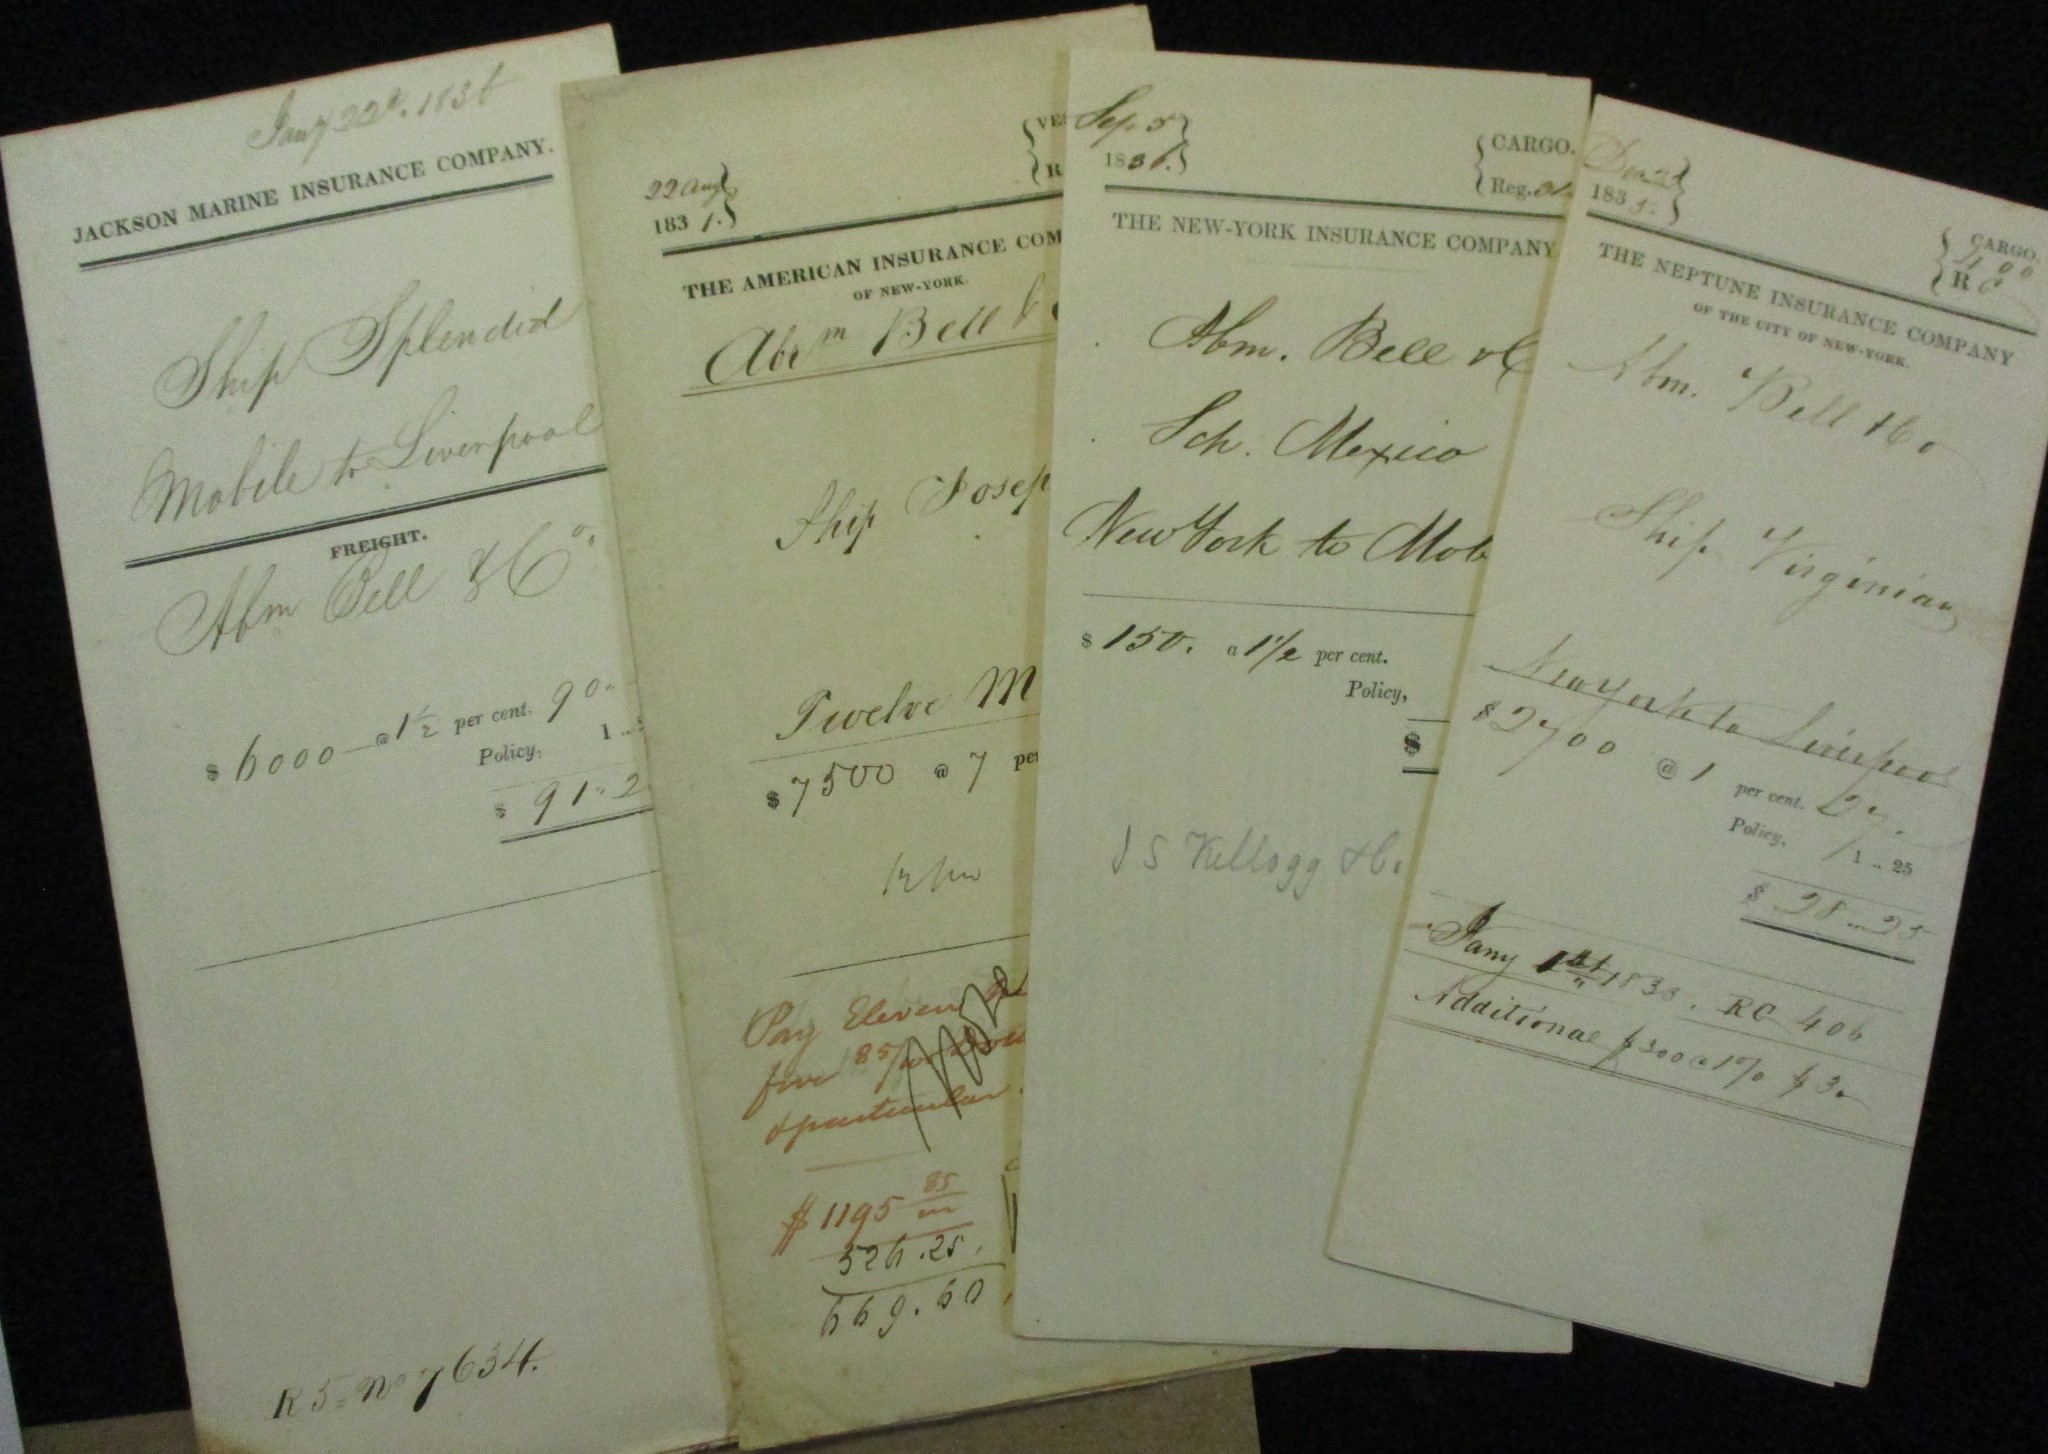 Jany 22d. 1836
JACKSON MARINE INSURANCE COMPANY.
Ship Splendid
Mobile to Liverpool
FREIGHT.
Abm Bell & Co.
$ 6000 @ 1 1/2 per cent. 90"
Policy, 1 ..
$ 91"2
R 5 = No 7634.
22 Aug
1831.
VES
R
THE AMERICAN INSURANCE COM
OF NEW-YORK.
Abrm Bell &
Ship Josep
Twelve M
$ 7500 @ 7 per
Pay Eleven
five 85/100
& particular
$ 1195 85
526.25
669.60
Sep 5
1836.
CARGO.
Reg.
THE NEW-YORK INSURANCE COMPANY.
Abm. Bell & C
Sch. Mexico
New York to Mob
$ 150. a 1 1/2 per cent.
Policy,
$
J S Kellogg & Co.
183
CARGO.
R
THE NEPTUNE INSURANCE COMPANY
OF THE CITY OF NEW-YORK.
Abm. Bell & Co
Ship Virginian
New York to Liverpool
$ 2700 @ 1 per cent. 27.
Policy, 1 .. 25
$ 28 .. 25
Jany 1st 1833. RC 406
Additional $300 a 1% $3.